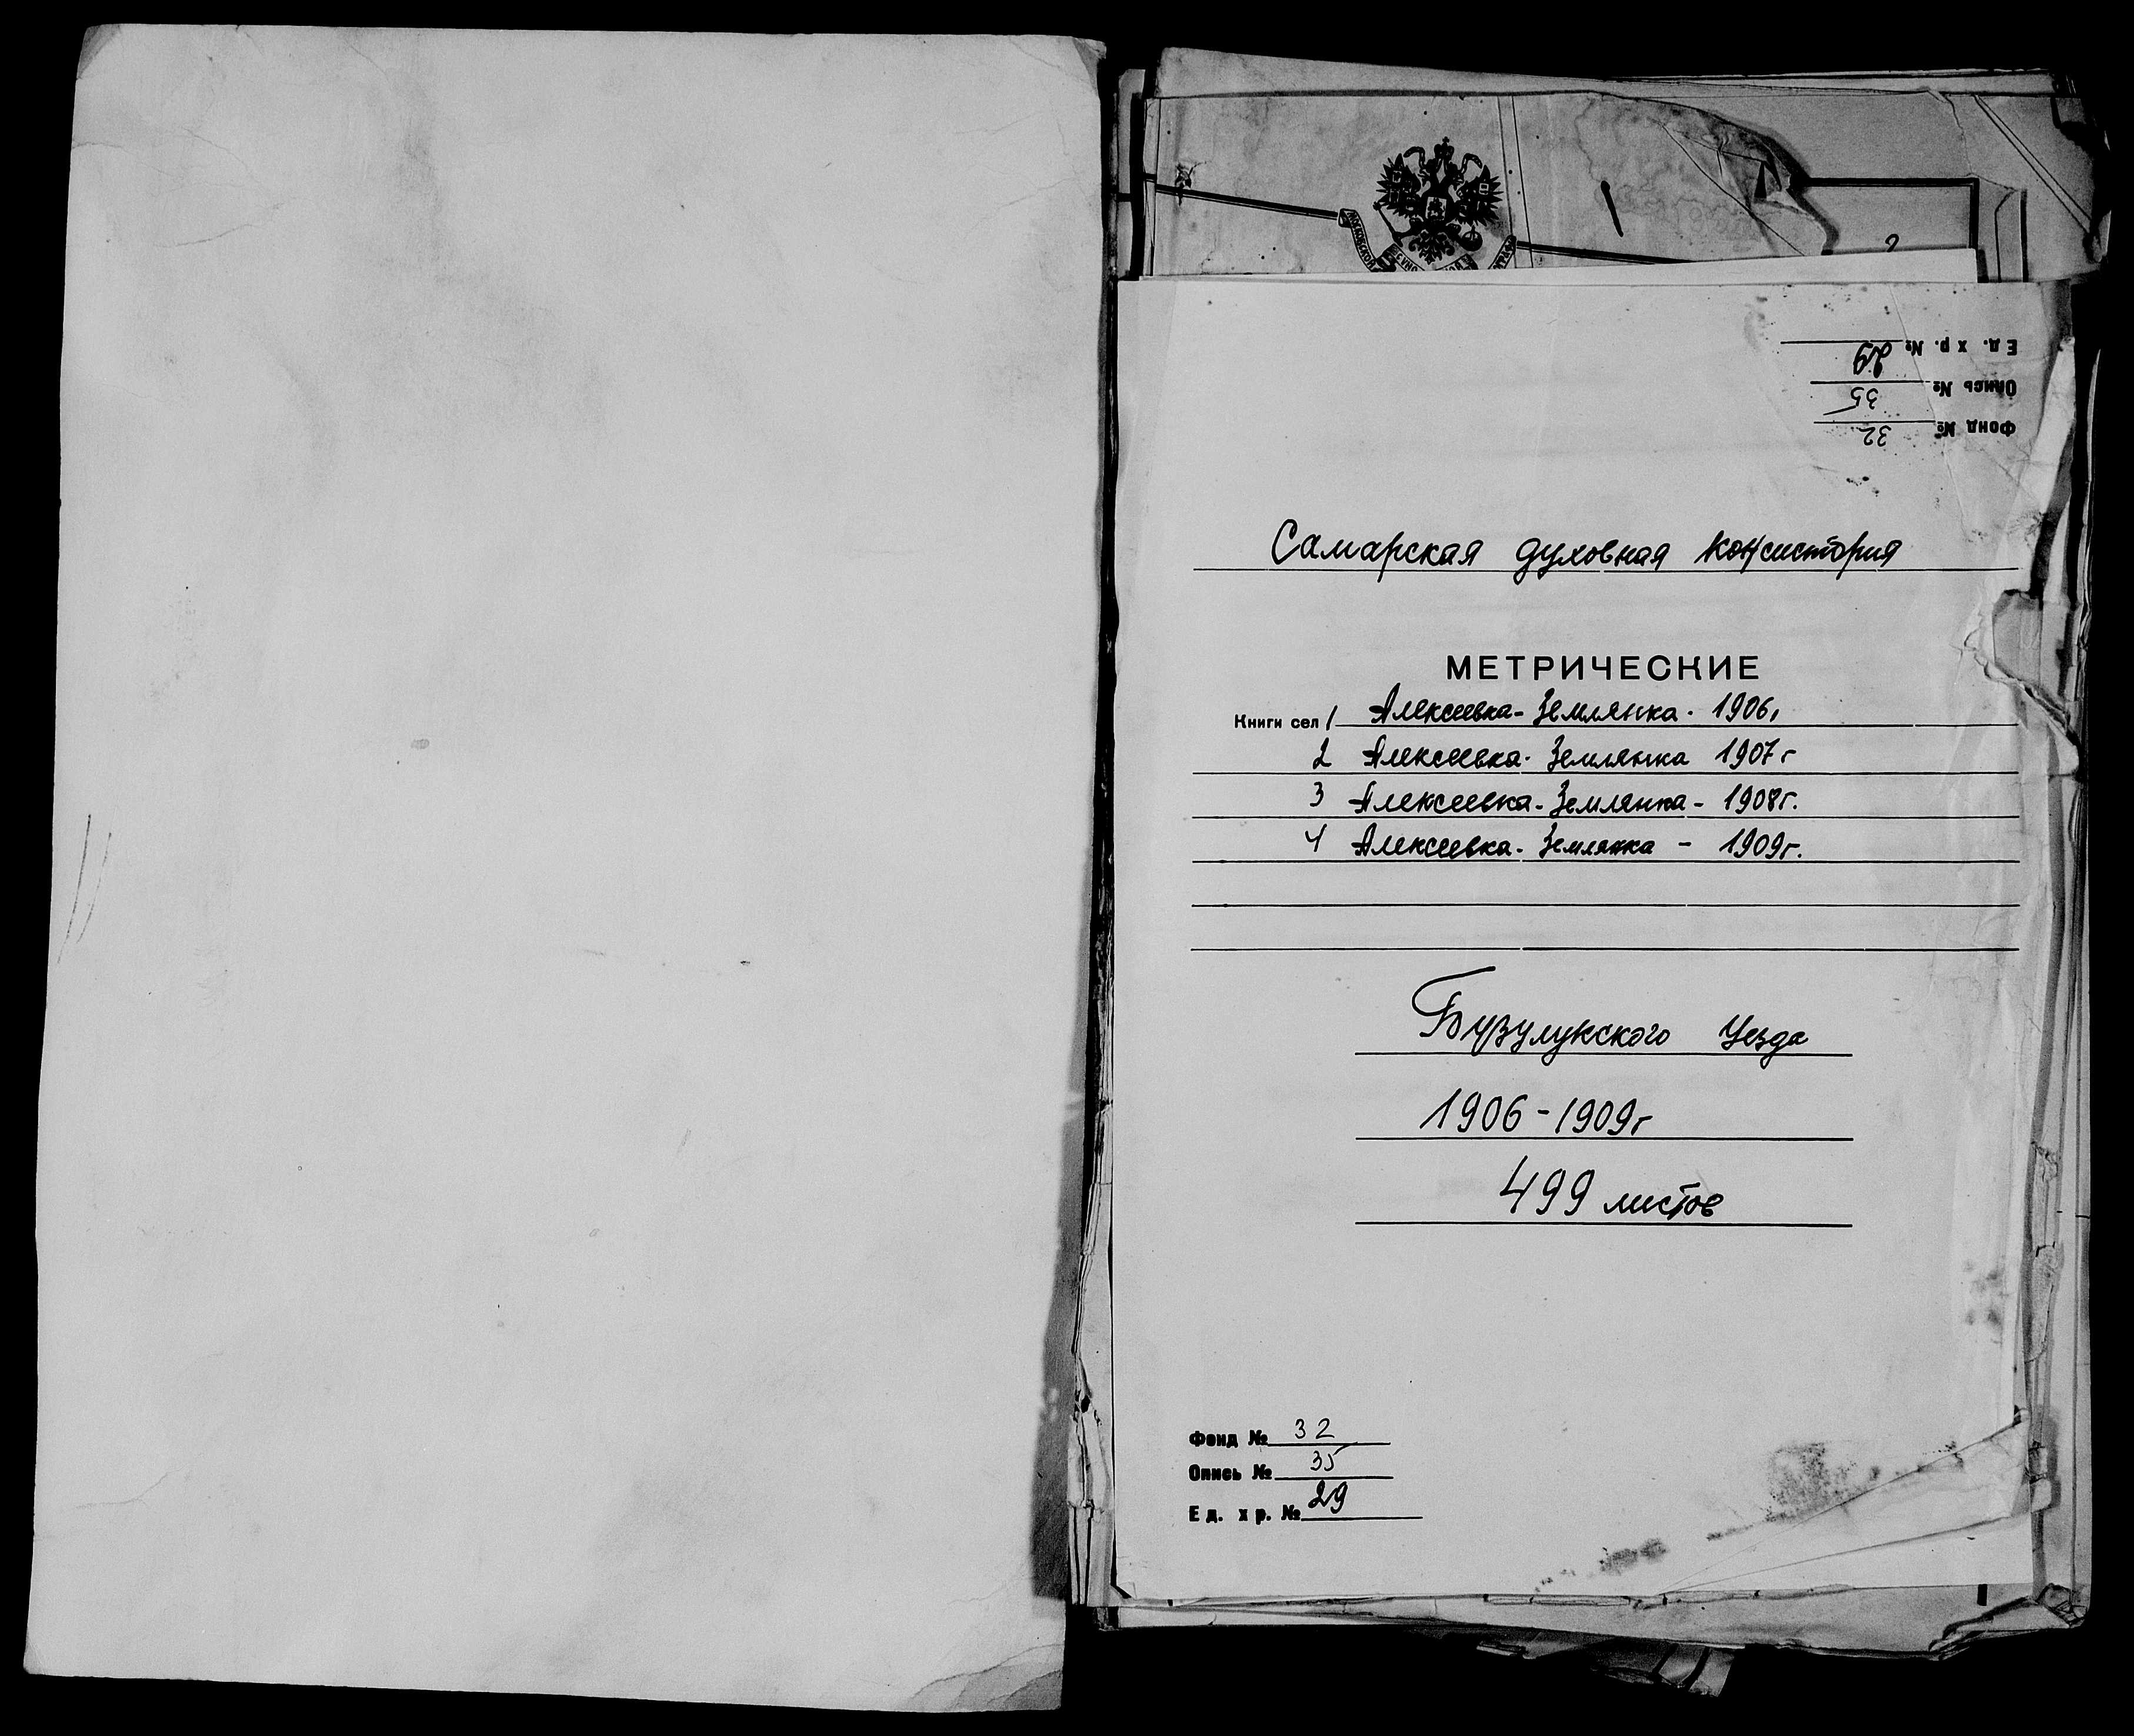 Ед. хр. № 29
Опись № 35
Фонд № 32
Самарская духовная консистория
МЕТРИЧЕСКИЕ
Книги сел 1 Алексеевка-Землянка. 1906,
2 Алексеевка. Землянка 1907г
3 Алексеевка. Землянка - 1908г.
4 Алексеевка. Землянка - 1909г.
Бузулукского Уезда
1906-1909г
499 листов
Фонд № 32
Опись № 35
Ед. хр. № 29